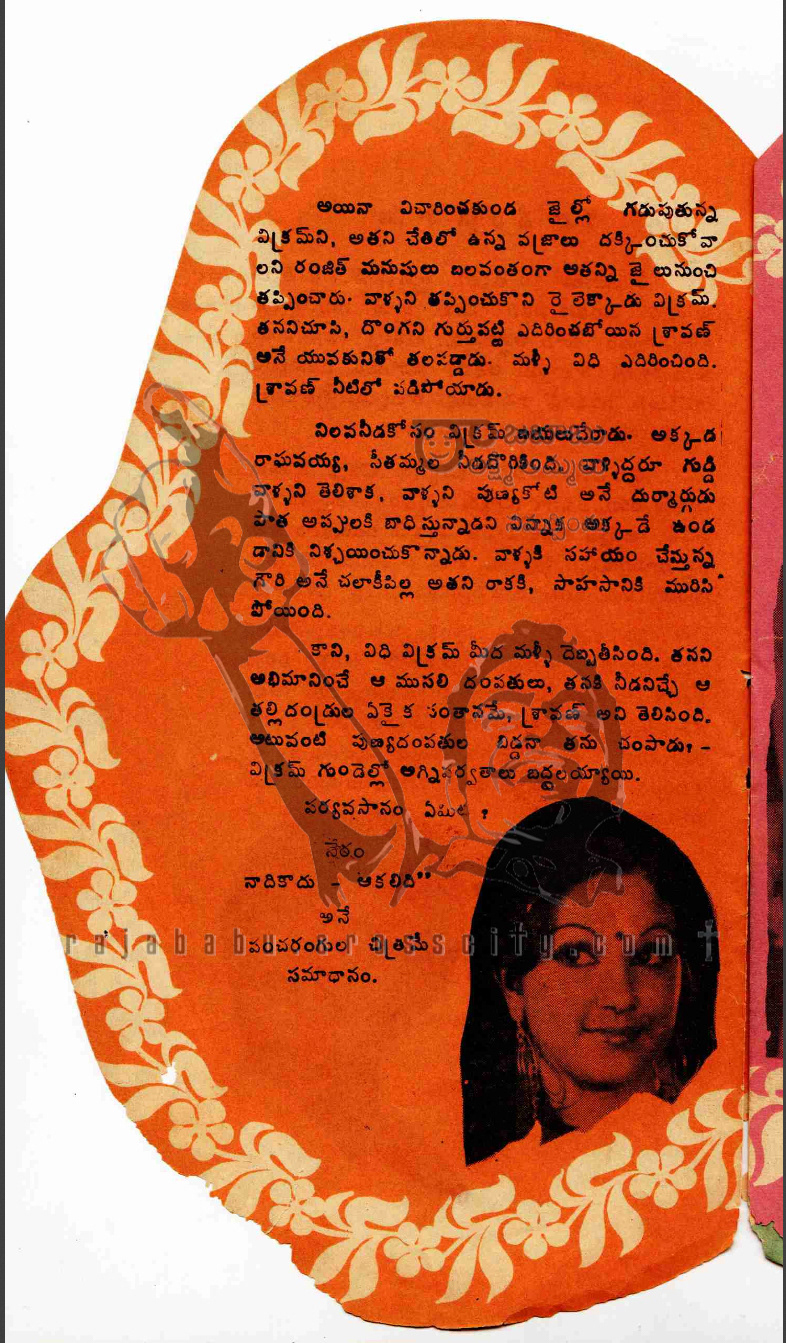 అయినా విచారించకుండ జైల్లో గడుపుతున్న
విక్రమ్‌ని, అతని చేతిలో ఉన్న వజ్రాలు దక్కించుకోవా
లని రంజిత్ మనుషులు బలవంతంగా అతన్ని జైలునుంచి
తప్పించారు. వాళ్ళని తప్పించుకొని రైలెక్కాడు విక్రమ్.
తననిచూసి, దొంగని గుర్తుపట్టి ఎదిరించబోయిన శ్రావణ్
అనే యువకునితో తలపడ్డాడు. మళ్ళీ విధి ఎదిరించింది.
శ్రావణ్ నీటిలో పడిపోయాడు.
నిలవనీడకోసం విక్రమ్ బయలుదేరాడు. అక్కడ
రాఘవయ్య, సీతమ్మల నీడదొరికింది. వాళ్ళిద్దరూ గుడ్డి
వాళ్ళని తెలిశాక, వాళ్ళని పుణ్యకోటి అనే దుర్మార్గుడు
పాత అప్పులకి బాధిస్తున్నాడని విన్నాక అక్కడే ఉండ
డానికి నిశ్చయించుకొన్నాడు. వాళ్ళకి సహాయం చేస్తన్న
గౌరి అనే చలాకీపిల్ల అతని రాకకి, సాహసానికి మురిసి
పోయింది.
కాని, విధి విక్రమ్ మీద మళ్ళీ దెబ్బతీసింది. తనని
అభిమానించే ఆ ముసలి దంపతులు, తనకి నీడనిచ్చే ఆ
తల్లిదండ్రుల ఏకైక సంతానమే, శ్రావణ్ అని తెలిసింది.
అటువంటి పుణ్యదంపతుల బిడ్డనా తను చంపాడు? -
విక్రమ్ గుండెల్లో అగ్నిపర్వతాలు బద్దలయ్యాయి.
పర్యవసానం ఏమిటి ?
నేరం
నాదికాదు - ఆకలిది"
అనే
పంచరంగుల చిత్రమే
సమాధానం.
rajababy crosscity.com